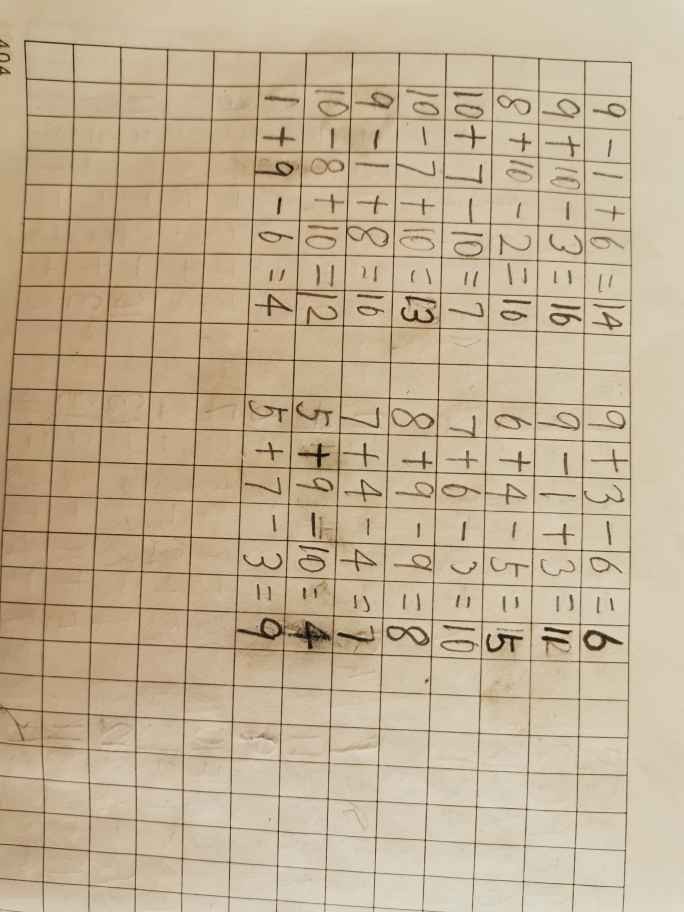 9-1+6=14 9+3-6=6
9+10-3=16 9-1+3=11
8+10-2=16 6+4-5=15
10+7-10=7 7+6-3=10
10-7+10=13 8+9-9=8
9-1+8=16 7+4-4=7
10-8+10=12 5+9-10=4
1+9-6=4 5+7-3=9